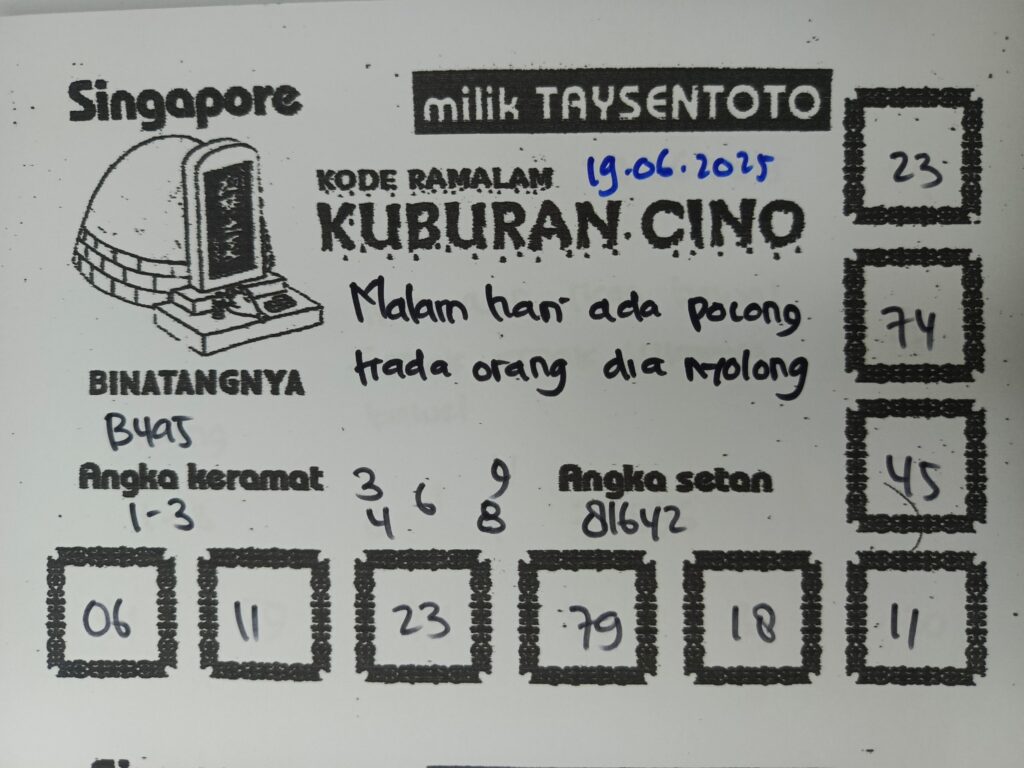 Singapore
milik TAYSENTOTO
KODE RAMALAM 19.06.2025
KUBURAN CINO
Malam hari ada pocong
trada orang dia nyolong
BINATANGNYA
B495
Angka keramat
1-3
3 6 9
4 8
Angka setan
81642
23
74
45
06 11 23 79 18 11